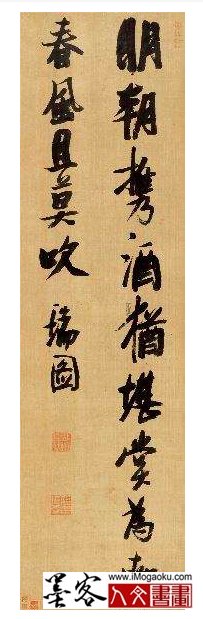 明朝携酒犹堪赏为
春风且莫吹 瑞图
墨客
www.iMogaoku.com
人文书画